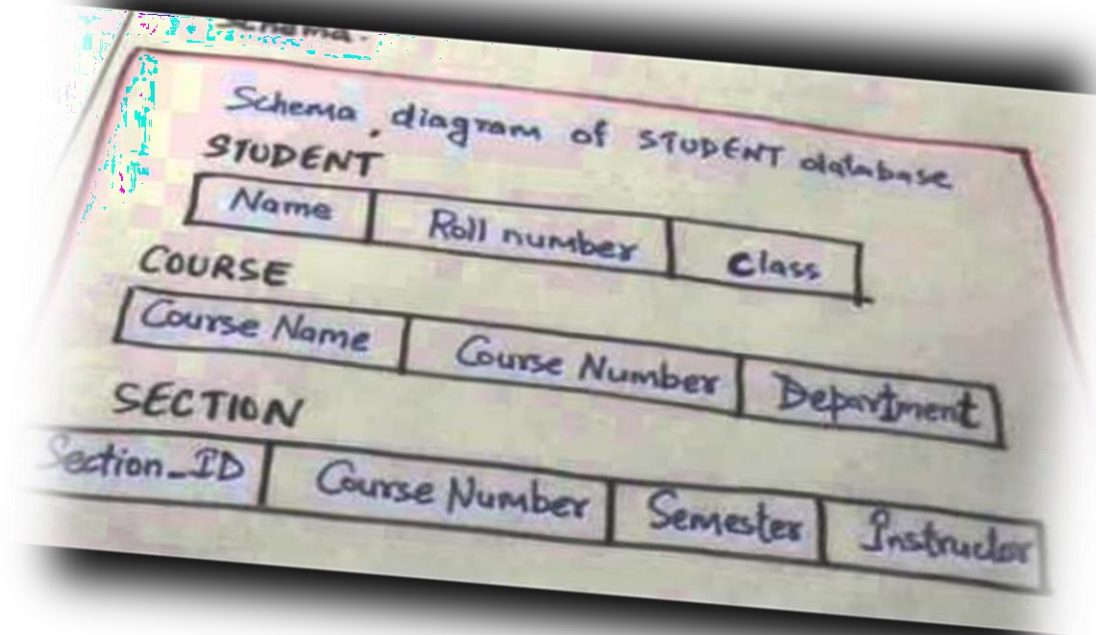 Schema.
Schema diagram of STUDENT database
STUDENT
Name Roll number Class
COURSE
Course Name Course Number Department
SECTION
Section_ID Course Number Semester Instructor